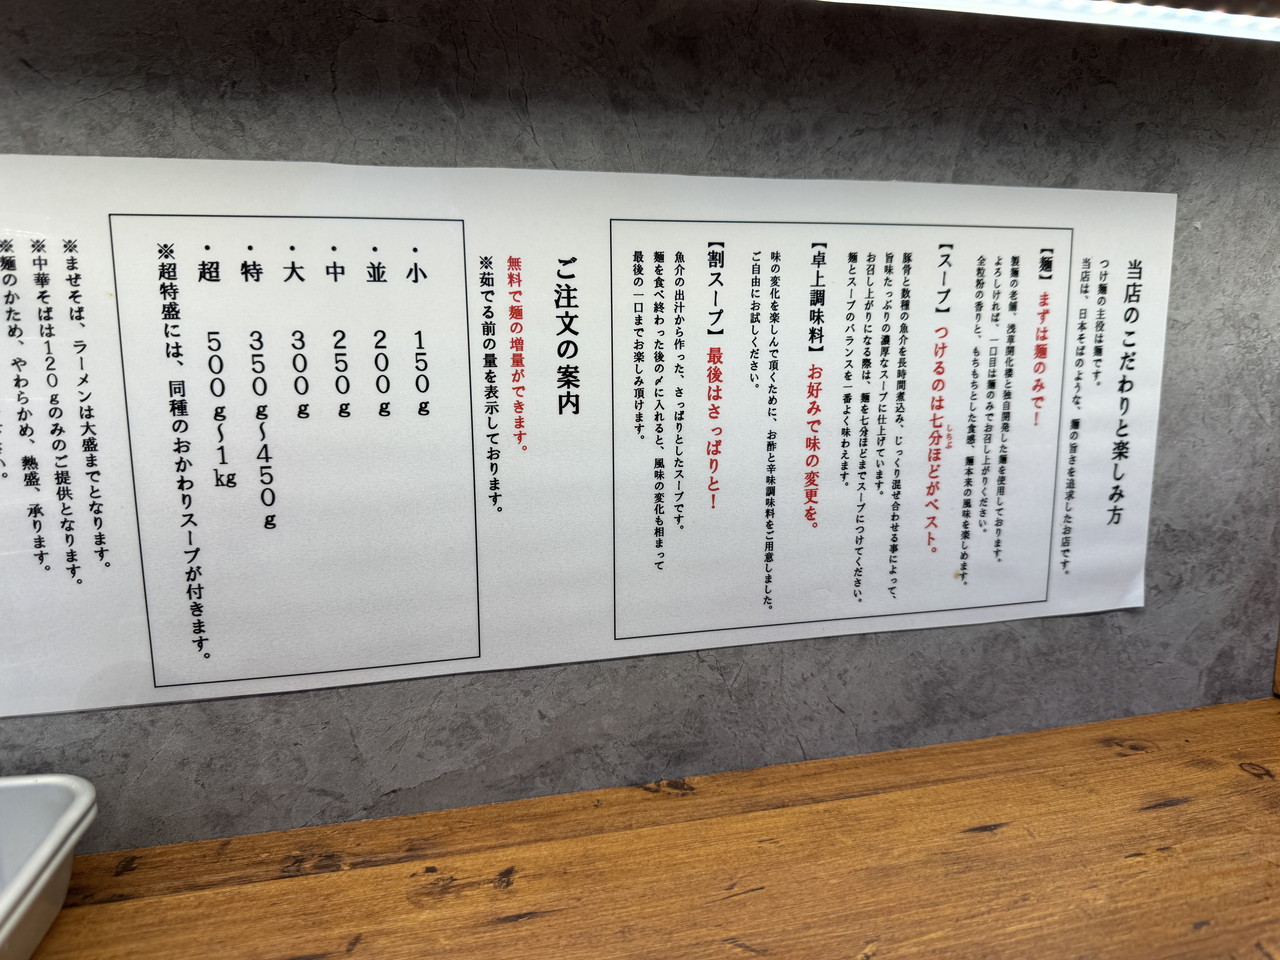 当店のこだわりと楽しみ方
つけ麺の主役は麺です。
当店は、日本そばのような、麺の旨さを追求したお店です。
【麺】まずは麺のみで！
製麺の老舗、浅草開化楼と独自開発した麺を使用しております。
よろしければ、一口目は麺のみでお召し上がりください。
全粒粉の香りと、もちもちとした食感、麺本来の風味を楽しめます。
【スープ】つけるのは七分ほどがベスト。
しちぶ
豚骨と数種の魚介を長時間煮込み、じっくり混ぜ合わせる事によって、
旨味たっぷりの濃厚なスープに仕上げています。
お召し上がりになる際は、麺を七分ほどまでスープにつけてください。
麺とスープのバランスを一番よく味わえます。
【卓上調味料】お好みで味の変更を。
味の変化を楽しんで頂くために、お酢と辛味調味料をご用意しました。
ご自由にお試しください。
【割スープ】最後はさっぱりと！
魚介の出汁から作った、さっぱりとしたスープです。
麺を食べ終わった後の〆に入れると、風味の変化も相まって
最後の一口までお楽しみ頂けます。
ご注文の案内
無料で麺の増量ができます。
※茹でる前の量を表示しております。
・小　150g
・並　200g
・中　250g
・大　300g
・特　350g〜450g
・超　500g〜1kg
※超特盛には、同種のおかわりスープが付きます。
※まぜそば、ラーメンは大盛までとなります。
※中華そばは120gのみのご提供となります。
※麺のかため、やわらかめ、熱盛、承ります。